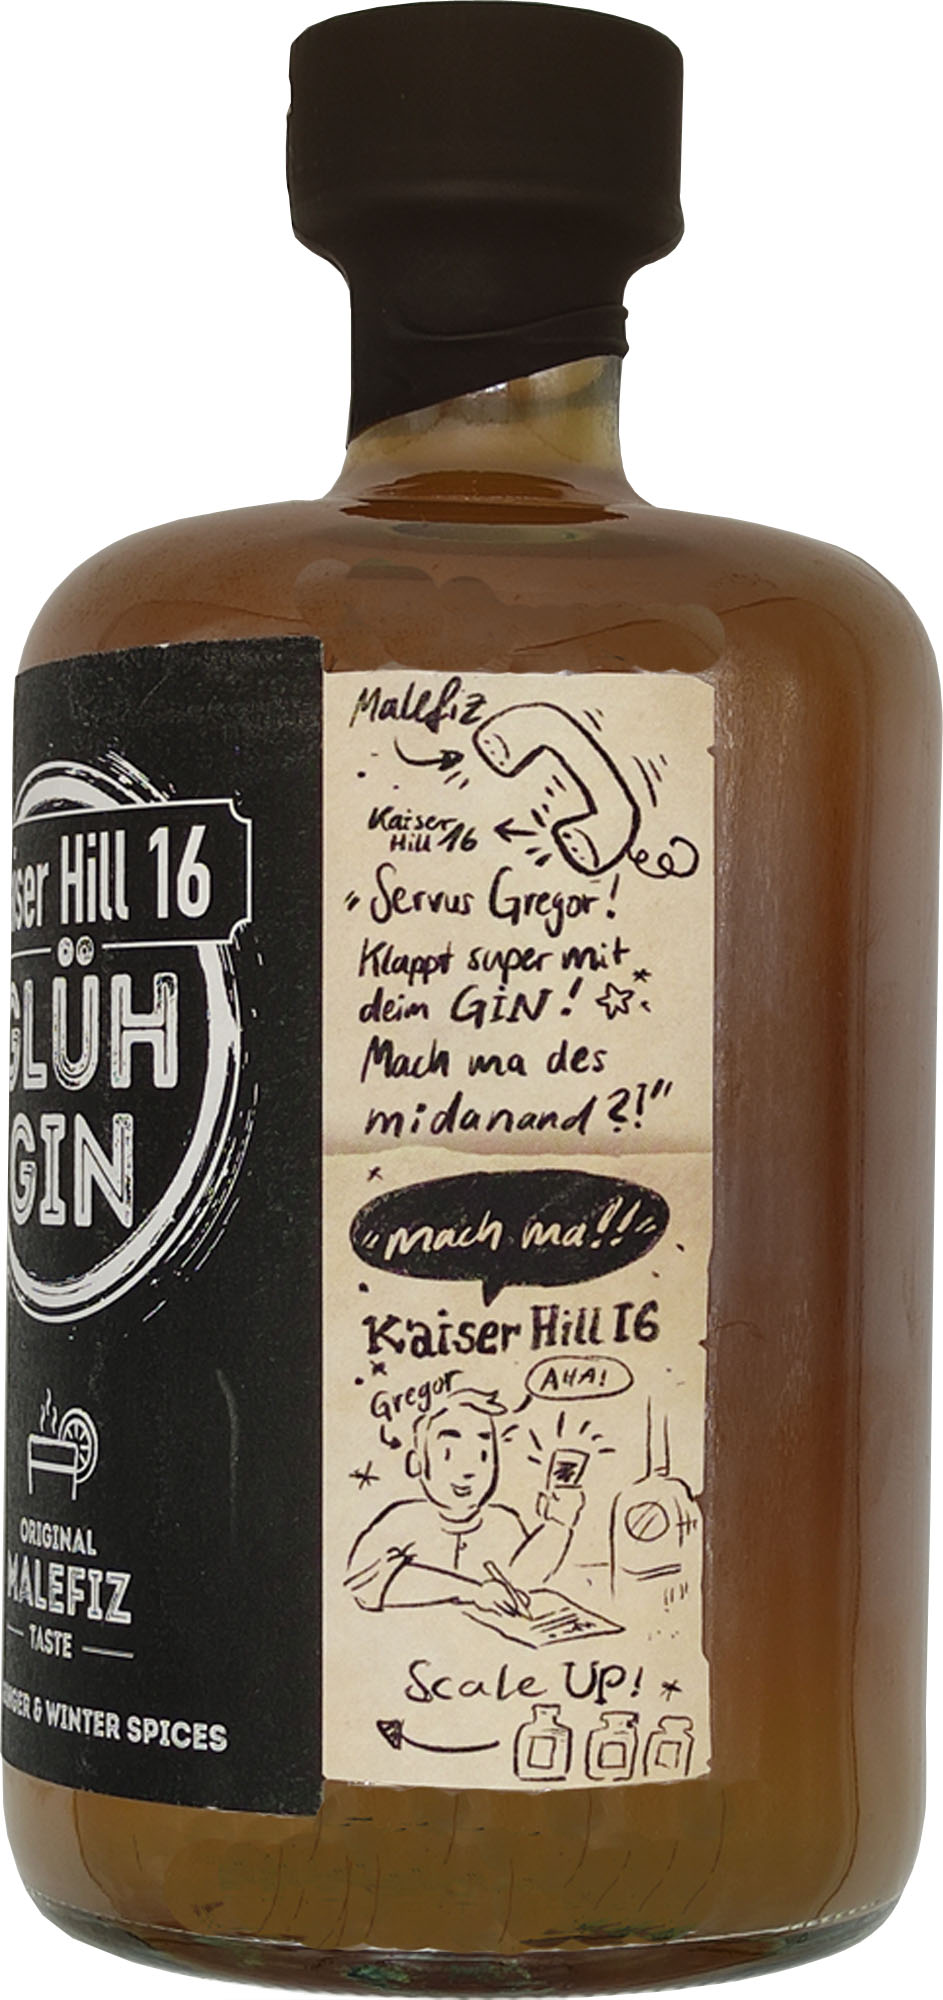 Hill 16
GLÜH
GIN
ORIGINAL
MALEFIZ
TASTE
& WINTER SPICES
Malefiz
Kaiser
Hill 16
"Servus Gregor!
Klappt super mit
deim GIN!
Mach ma des
midanand?!"
"mach ma!!"
Kaiser Hill 16
Gregor
AHA!
Scale UP!